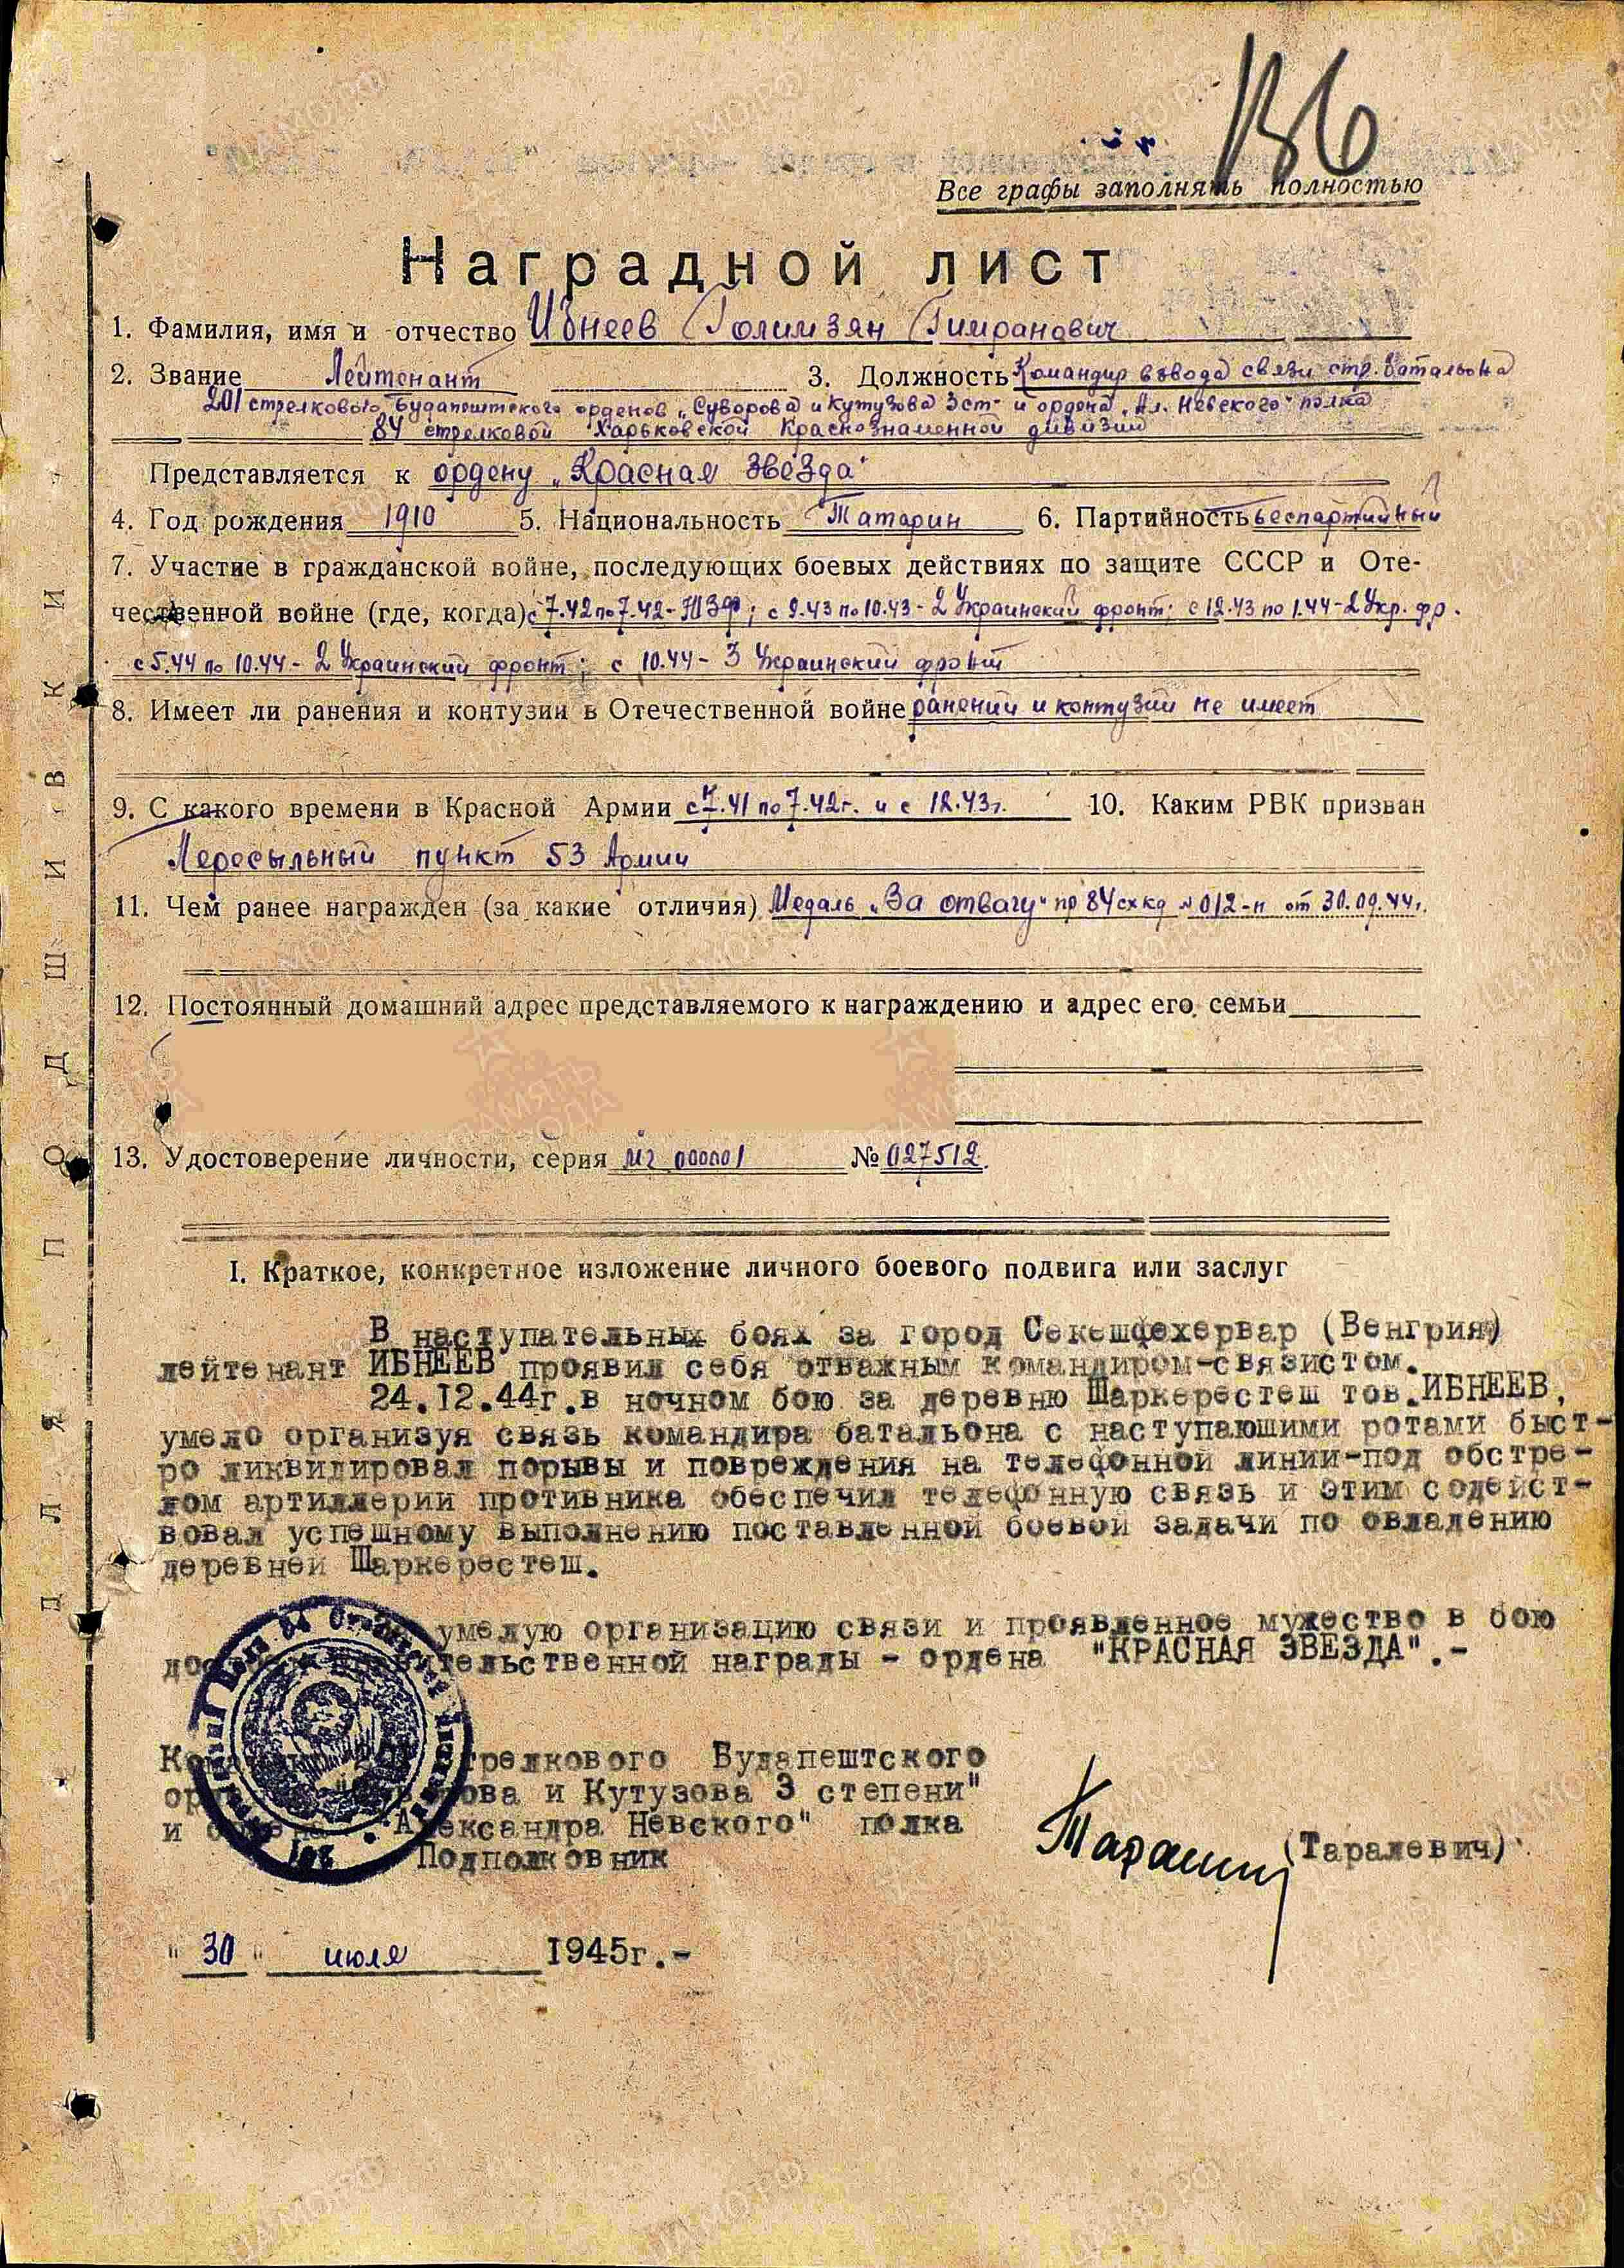 136
Все графы заполнять полностью
Наградной лист
1. Фамилия, имя и отчество Ибнеев Голимзян Гимранович
2. Звание Лейтенант 3. Должность Командир взвода связи стр. батальона
201 стрелкового Будапештского орденов „Суворова и Кутузова 3 ст" и ордена „Ал. Невского" полка
84 стрелковой Харьковской Краснознаменной дивизии
Представляется к ордену „Красная Звезда"
4. Год рождения 1910 5. Национальность Татарин 6. Партийность беспартийный
7. Участие в гражданской войне, последующих боевых действиях по защите СССР и Оте-
чественной войне (где, когда) с 7.42 по 7.42 - ЮЗФ; с 9.43 по 10.43 - 2 Украинский фронт; с 12.43 по 1.44 - 2 Укр. фр.
с 5.44 по 10.44 - 2 Украинский фронт; с 10.44 - 3 Украинский фронт
8. Имеет ли ранения и контузии в Отечественной войне ранений и контузий не имеет
9. С какого времени в Красной Армии с 7.41 по 7.42г. и с 12.43г. 10. Каким РВК призван
Пересыльный пункт 53 Армии
11. Чем ранее награжден (за какие отличия) Медаль „За отвагу" пр 84 схкд № 012-н от 30.09.44г.
12. Постоянный домашний адрес представляемого к награждению и адрес его семьи
13. Удостоверение личности, серия МГ 000001 № 027512
I. Краткое, конкретное изложение личного боевого подвига или заслуг
В наступательных боях за город Секешфехервар (Венгрия)
лейтенант ИБНЕЕВ проявил себя отважным командиром-связистом.
24.12.44г. в ночном бою за деревню Шаркерестеш тов. ИБНЕЕВ,
умело организуя связь командира батальона с наступающими ротами быст-
ро ликвидировал порывы и повреждения на телефонной линии-под обстре-
лом артиллерии противника обеспечил телефонную связь и этим содейст-
вовал успешному выполнению поставленной боевой задачи по овладению
деревней Шаркерестеш.
умелую организацию связи и проявленное мужество в бою
достоин правительственной награды - ордена "КРАСНАЯ ЗВЕЗДА".-
Командир 201 стрелкового Будапештского
орденов "Суворова и Кутузова 3 степени"
и ордена "Александра Невского" полка
Подполковник
(Таралевич)
"30" июля 1945г.-
ДЛЯ ПОДШИВКИ